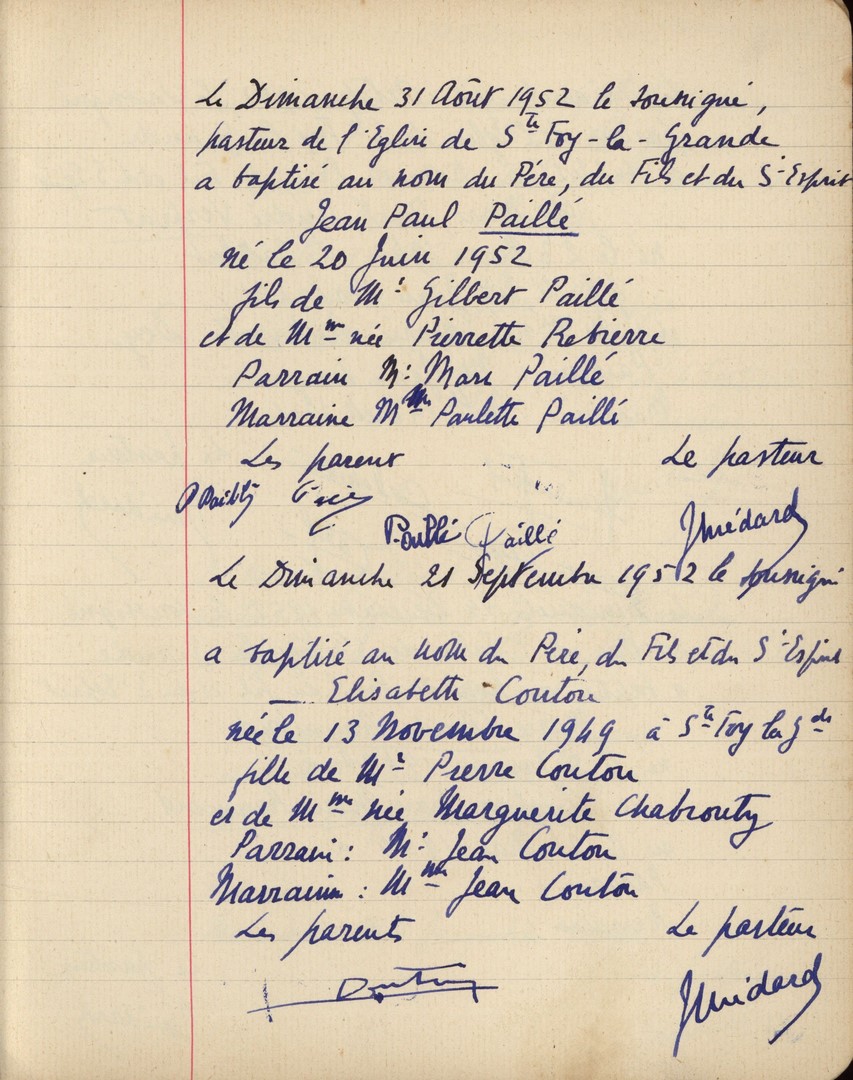 Le Dimanche 31 Août 1952 le soussigné,
pasteur de l'Eglise de Ste Foy-la-Grande
a baptisé au nom du Père, du Fils et du St Esprit
Jean Paul Paillé
né le 20 Juin 1952
fils de Mr Gilbert Paillé
et de Mme née Pierrette Rebierre
Parrain Mr Marc Paillé
Marraine Mme Paulette Paillé
Les parents Le pasteur
Paillé JMédard
Le Dimanche 21 Septembre 1952 le soussigné
a baptisé au nom du Père, du Fils et du St Esprit
— Elisabeth Couton
née le 13 Novembre 1949 à Ste Foy la Gde
fille de Mr Pierre Couton
et de Mme née Marguerite Chabrouty
Parrain : Mr Jean Couton
Marraine : Mme Jean Couton
Les parents Le pasteur
JMédard